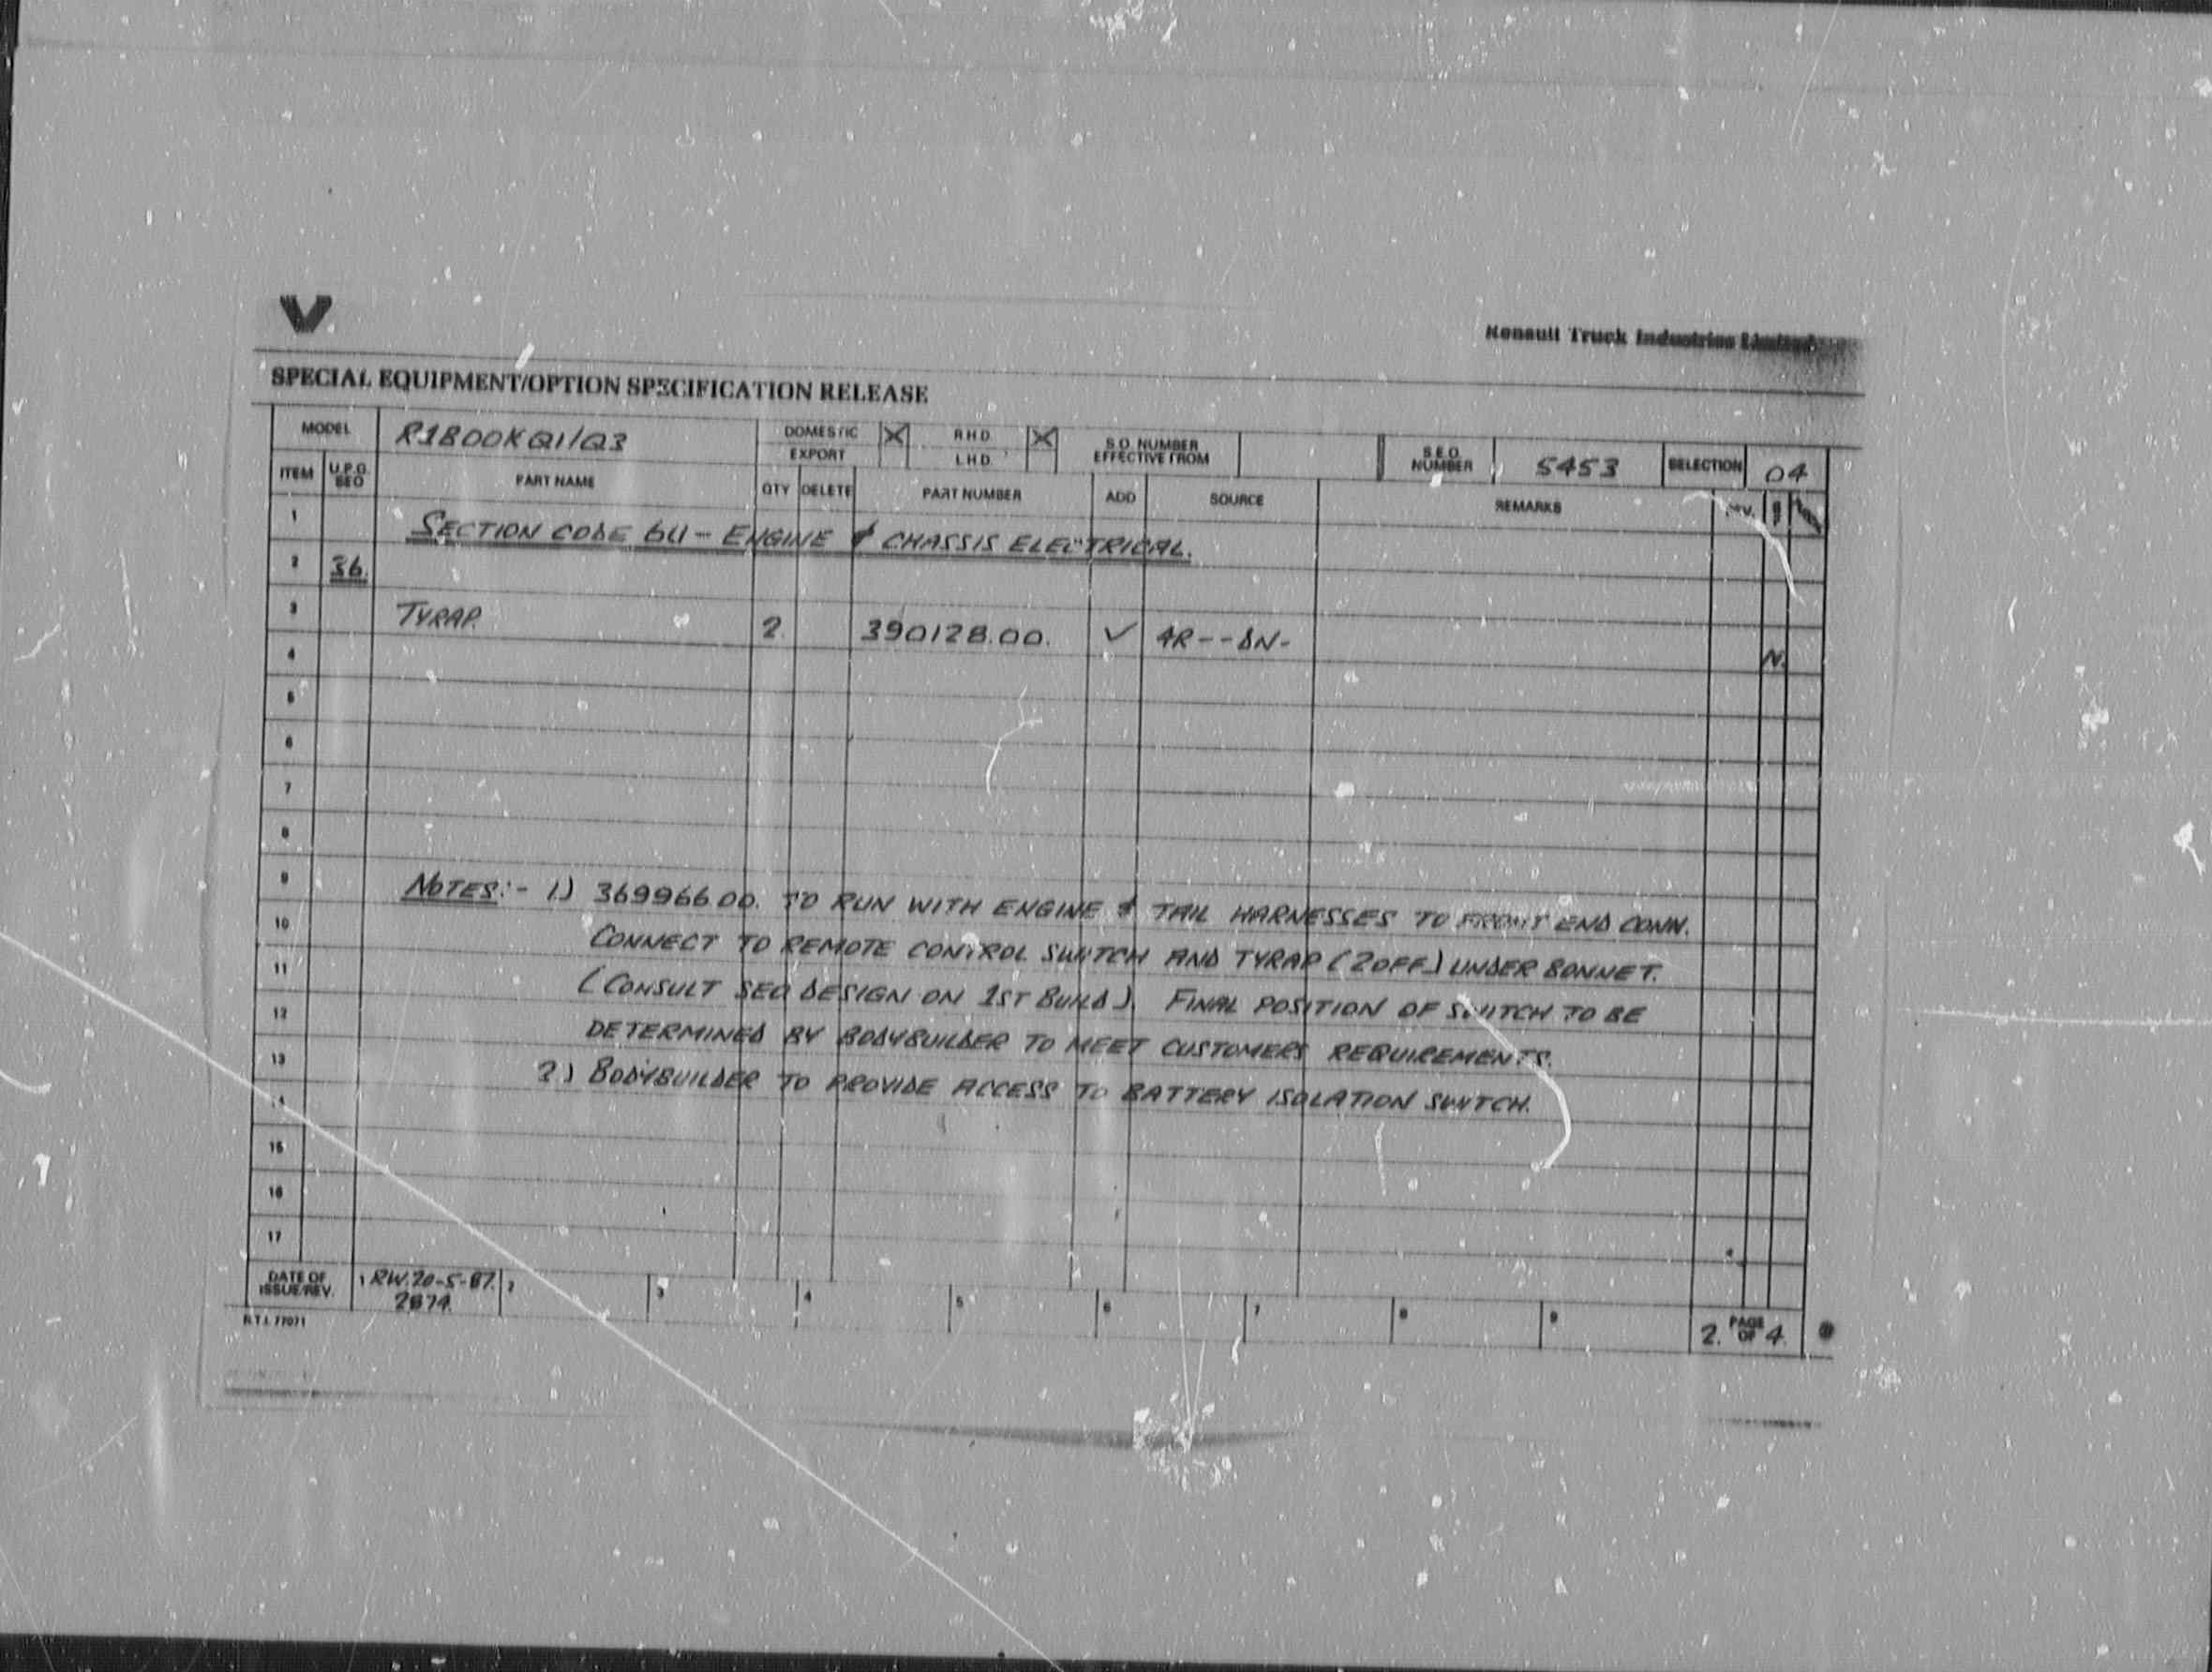 Renault Truck Industries Limited
SPECIAL EQUIPMENT/OPTION SPECIFICATION RELEASE
MODEL R1800KQ1/Q3 DOMESTIC X R.H.D. X S.O. NUMBER EFFECTIVE FROM S.E.O. NUMBER 5453 SELECTION 04
EXPORT L.H.D.
ITEM U.P.G. SEO PART NAME QTY DELETE PART NUMBER ADD SOURCE REMARKS
1 SECTION CODE 64 - ENGINE & CHASSIS ELECTRICAL.
2 36.
3 TYRAP. 2. 390128.00. ✓ 4R--DN- N.
4
5
6
7
8
9 NOTES:- 1) 369966.00. TO RUN WITH ENGINE & TAIL HARNESSES TO FRONT END CONN.
10 CONNECT TO REMOTE CONTROL SWITCH AND TYRAP (2OFF) UNDER BONNET.
11 (CONSULT SEO DESIGN ON 1ST BUILD). FINAL POSITION OF SWITCH TO BE
12 DETERMINED BY BODYBUILDER TO MEET CUSTOMERS REQUIREMENTS.
13 2) BODYBUILDER TO PROVIDE ACCESS TO BATTERY ISOLATION SWITCH.
14
15
16
17
DATE OF ISSUE/REV. 1 RW.20-5-87. 2 3 4 5 6 7 8 9 2. PAGE OF 4.
2874.
R.T.I. 77071